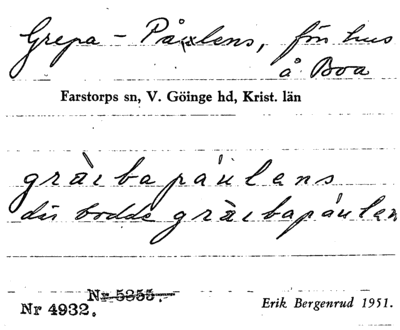 Grepa - Påxlens, förr hus
å Boa
Farstorps sn, V. Göinge hd, Krist. län
gràebapáulans
där bodde gràebapáulan
Nr 5255.
Nr 4932. Erik Bergenrud 1951.